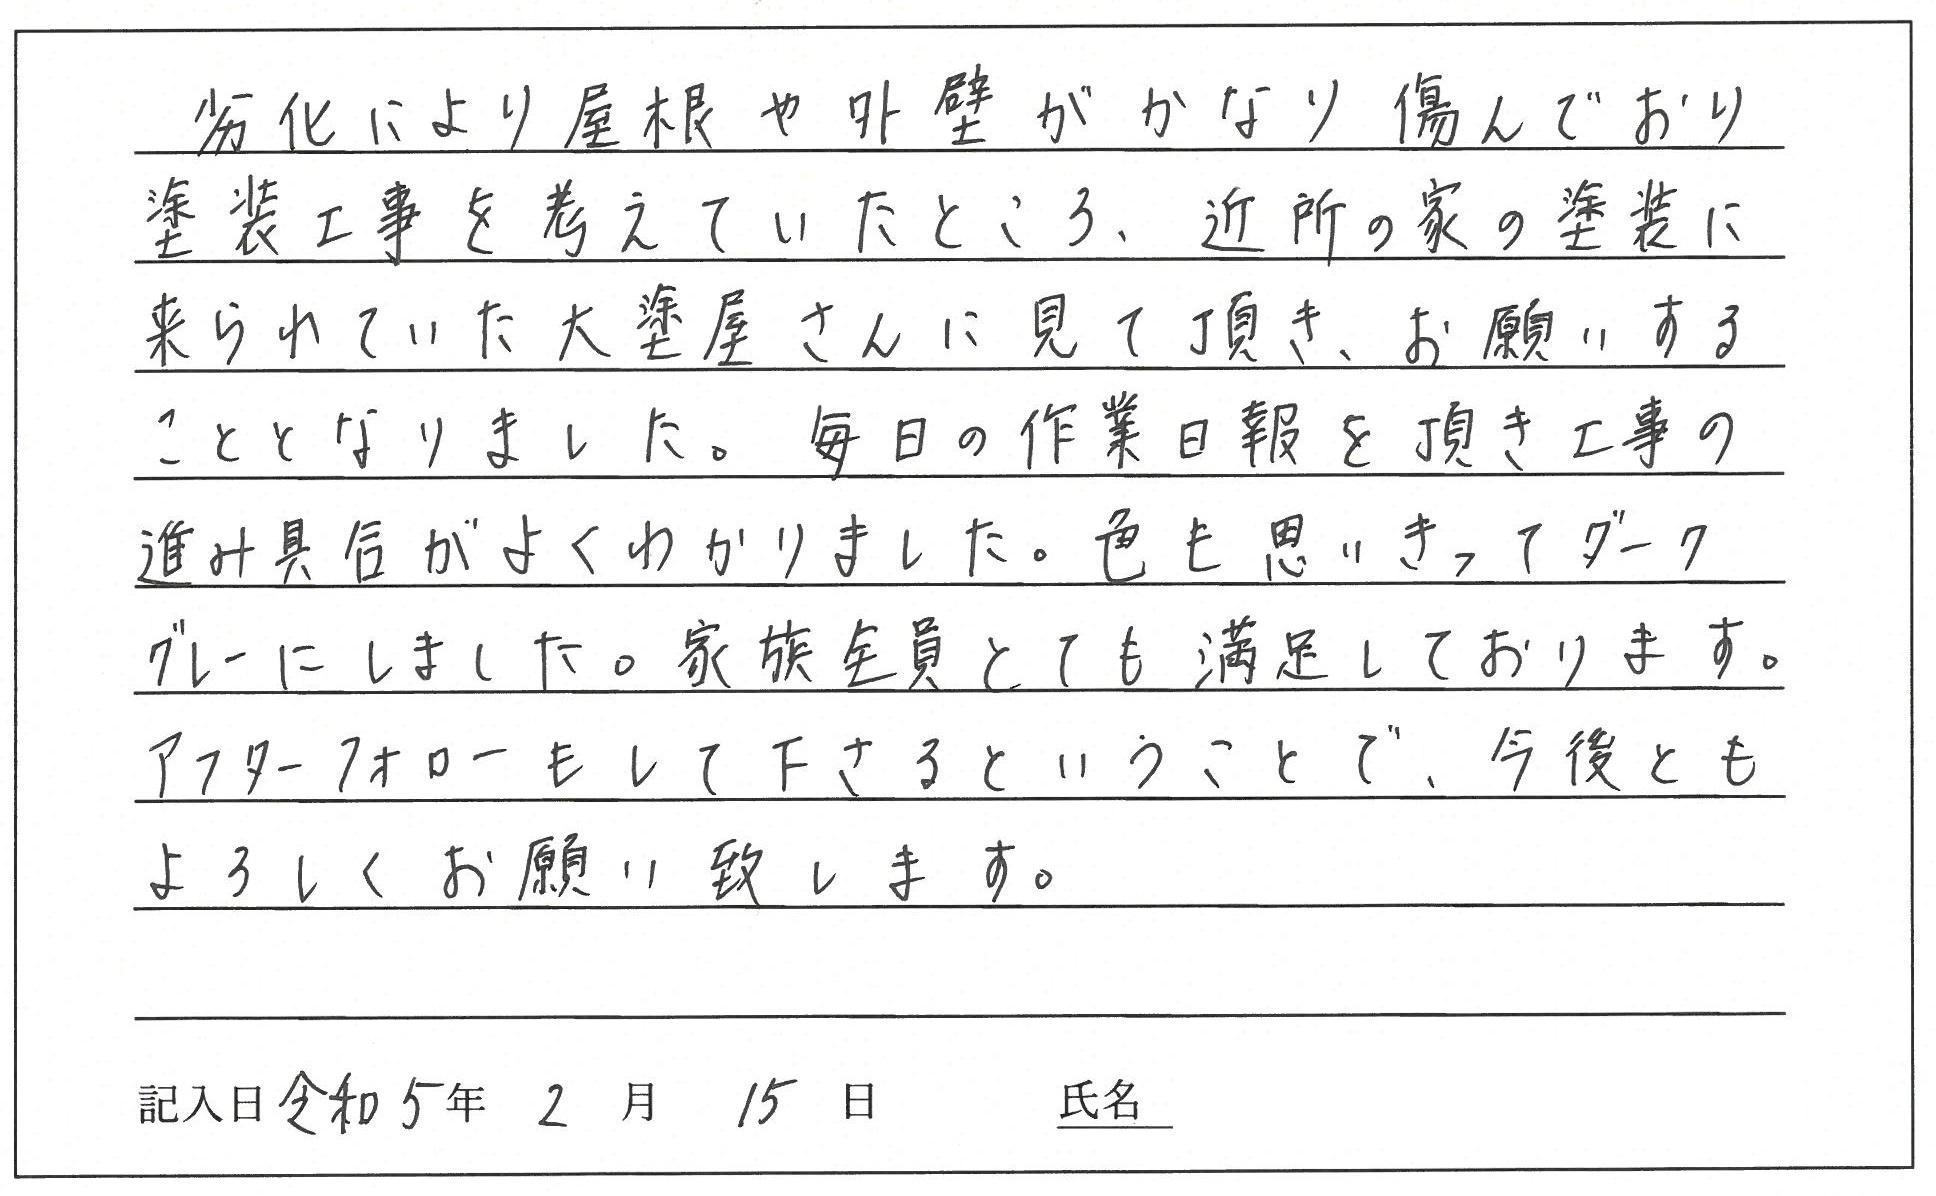 劣化により屋根や外壁がかなり傷んでおり
塗装工事を考えていたところ、近所の家の塗装に
来られていた大塗屋さんに見て頂き、お願いする
こととなりました。毎日の作業日報を頂き工事の
進み具合がよくわかりました。色も思いきってダーク
グレーにしました。家族全員とても満足しております。
アフターフォローもして下さるということで、今後とも
よろしくお願い致します。
記入日 令和5年 2月 15日 氏名